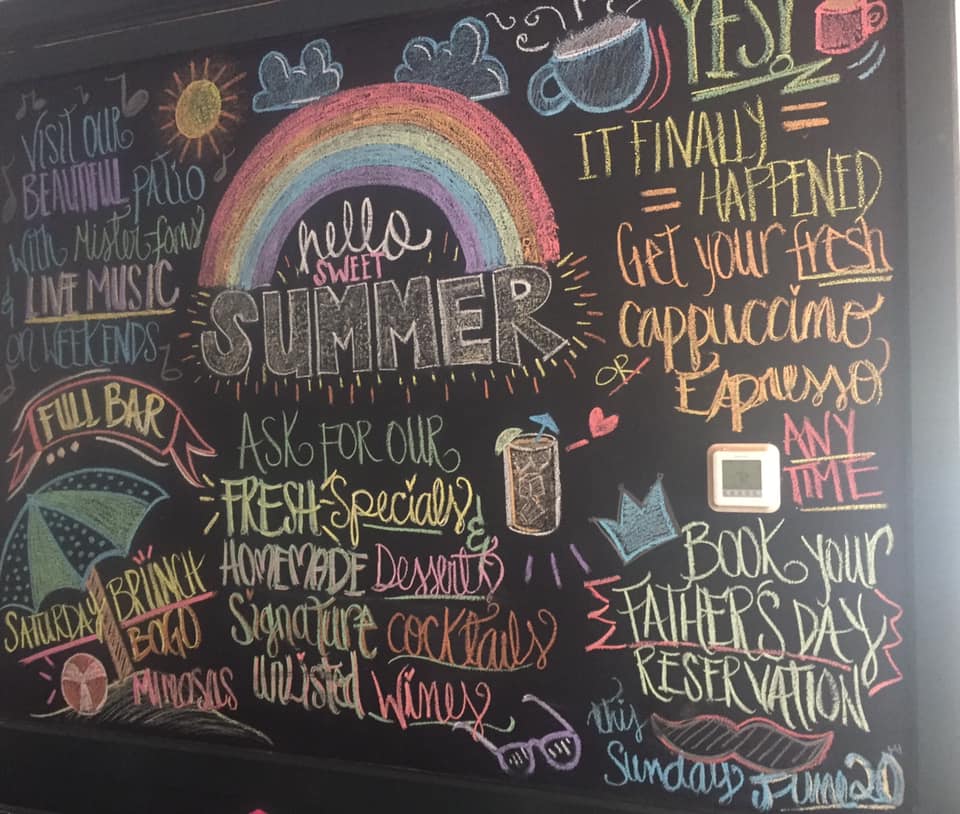 VISIT OUR
BEAUTIFUL PATIO
with Mister fans
& LIVE MUSIC
on WEEKENDS
FULL BAR
SATURDAY BRUNCH
BOGO
MIMOSAS
hello
SWEET
SUMMER
ASK FOR OUR
FRESH Specials &
HOMEMADE Desserts
Signature cocktails
unlisted Wines
YES!
IT FINALLY
HAPPENED
Get your fresh
cappuccino
OR Espresso
ANY
TIME
BOOK your
FATHER'S DAY
RESERVATION
this
Sunday June 20